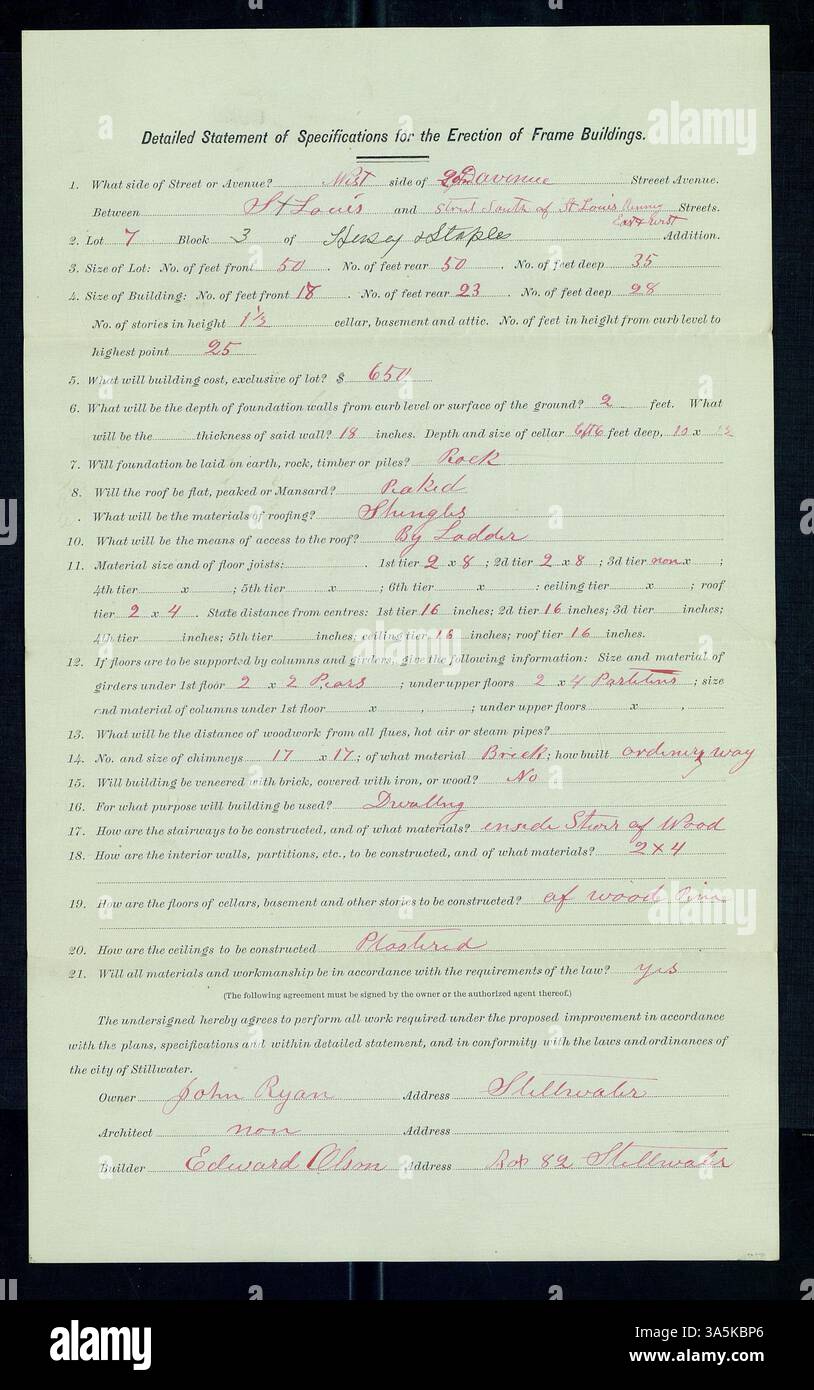 Detailed Statement of Specifications for the Erection of Frame Buildings.
1. What side of Street or Avenue? West side of avenue Streeet Avenue.
Between St Louis and street South of St Louis Runing East & West Streets.
2. Lot 7 Block 3 of Hersey & Staples Addition.
3. Size of Lot: No. of feet front 50. No. of feet rear 50. No. of feet deep 35
4. Size of Building: No. of feet front 18. No. of feet rear 23. No. of feet deep 28
No. of stories in height 1 1/2 cellar, basement and attic. No. of feet in height from curb level to
highest point 25
5. What will building cost, exclusive of lot? $ 650
6. What will be the depth of foundation walls from curb level or surface of the ground? 2 feet. What
will be the thickness of said wall? 18 inches. Depth and size of cellar feet deep, 10 x 12
7. Will foundation be laid on earth, rock, timber or piles? Rock
8. Will the roof be flat, peaked or Mansard? Peaked
. What will be the materials of roofing? Shingles
10. What will be the means of access to the roof? By Ladder
11. Material size and of floor joists: . 1st tier 2 x 8 ; 2d tier 2 x 8 ; 3d tier non x ;
4th tier x ; 5th tier x ; 6th tier x : ceiling tier x ; roof
tier 2 x 4 . State distance from centres: 1st tier 16 inches; 2d tier 16 inches; 3d tier inches;
4th tier inches; 5th tier inches; ceiling tier 16 inches; roof tier 16 inches.
12. If floors are to be supported by columns and girders, give the following information: Size and material of
girders under 1st floor 2 x 2 Pears ; under upper floors 2 x 4 Partitins ; size
and material of columns under 1st floor x , ; under upper floors x ,
13. What will be the distance of woodwork from all flues, hot air or steam pipes?
14. No. and size of chimneys 17 x 17 ; of what material Brick ; how built ordinery way
15. Will building be veneered with brick, covered with iron, or wood? No
16. For what purpose will building be used? Dwallng
17. How are the stairways to be constructed, and of what materials? enside Steir of Wood
18. How are the interior walls, partitions, etc., to be constructed, and of what materials? 2 x 4
19. How are the floors of cellars, basement and other stories to be constructed? of wood Pine
20. How are the ceilings to be constructed Plastered
21. Will all materials and workmanship be in accordance with the requirements of the law? yes
(The following agreement must be signed by the owner or the authorized agent thereof.)
The undersigned hereby agrees to perform all work required under the proposed improvement in accordance
with the plans, specifications and within detailed statement, and in conformity with the laws and ordinances of
the city of Stillwater.
Owner John Ryan Address Stillwater
Architect non Address
Builder Edward Olson Address Box 82 Stillwater
alamy
Image ID: 3A5KBP6
www.alamy.com